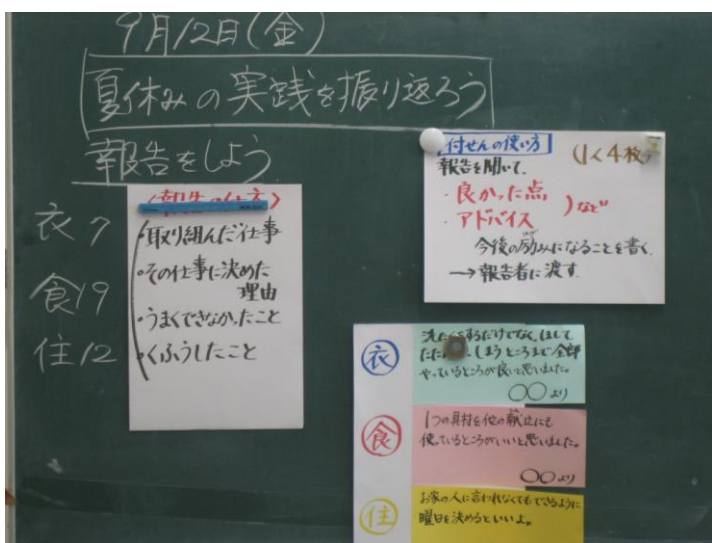 9月12日(金)
夏休みの実践を振り返ろう
報告をしよう
衣 7
食 19
住 12
<報告の仕方>
・取り組んだ仕事
・その仕事に決めた
理由
・うまくできなかったこと
・くふうしたこと
付せんの使い方
(1人4枚)
報告を聞いて、
・良かった点
・アドバイス
など
今後の励みになることを書く
→報告者に渡す。
衣
洗たくをするだけでなく、ほして
たた しまうところまで全部
やっているところが良いと思いました。
〇〇より
食
1つの具材を他の献立にも
使っているところがいいと思いました。
〇〇より
住
お家の人に言われなくてもできるように
曜日を決めるといいよ。